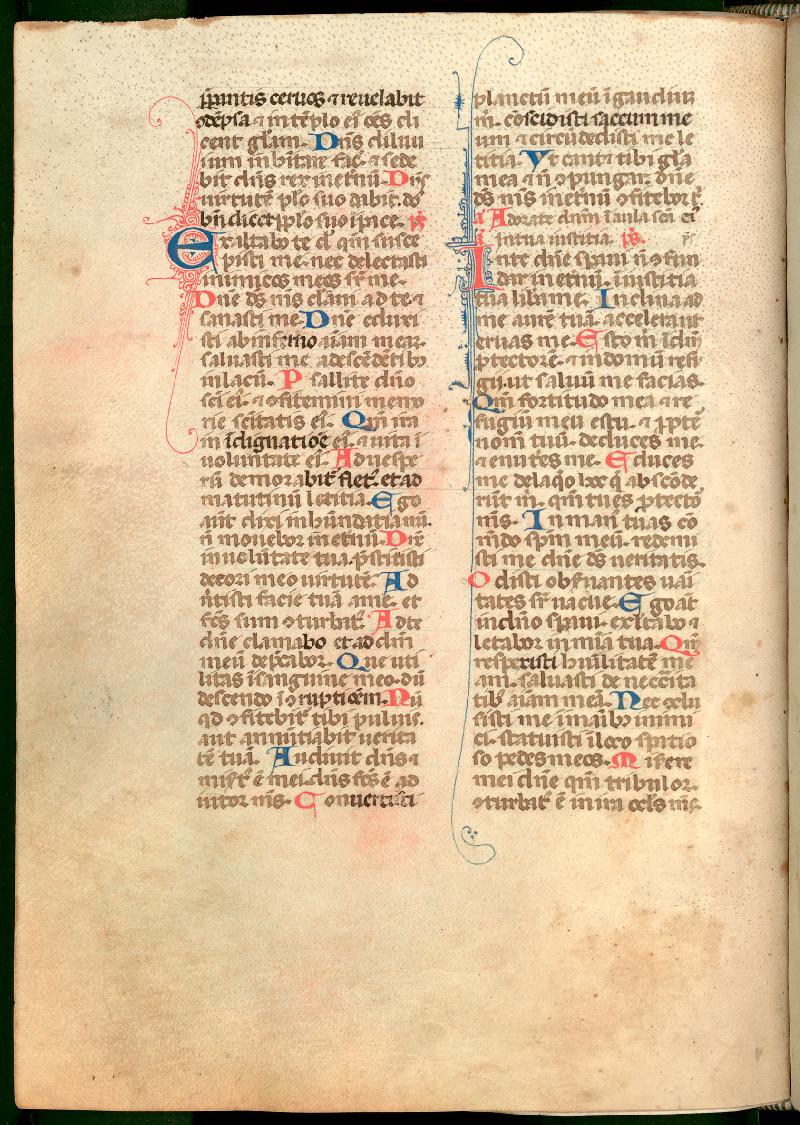 ꝑantis ceruos ⁊ reuelabit
ↄdēpsa ⁊ in tēplo ei᷒ oēs di
cent glam̄. Dn̄s diluu
ium inhitare fac̄. ⁊ sede
bit dn̄s rex in etnū. Dn̄s
uirtutē plo suo dabit. dn̄s
bn̄dicet plo suo i pace. ps̄
Exaltabo te dn̄e qm̄ susce
pisti me. nec delectasti
inimicos meos sr̄ me.
Dn̄e ds̄ ms̄ clam̄ ad te ⁊
sanasti me. Dn̄e eduxi
sti ab inferno aīam meaꝫ.
saluasti me a descēdētibꝰ
in lacū. Psallite dn̄o
sci ei᷒. ⁊ ↄfitemini memo
rie scitatis ei᷒. Qm̄ ira
in īdignatiōe ei᷒. ⁊ uita ī
uoluntate ei᷒. Ad uespe
rū demorabit᷒ flet᷒. et ad
matutinū letitia. Ego
aūt dixi in hūndātia mā.
n̄ mouebor in etnū. Dn̄e
in uolūtate tua. p̄stitisti
decori meo uirtutē. Ad
u̇tisti faciē tuā a me. et
fc̄s sum ↄturbat᷒. Ad te
dn̄e clamabo et ad dm̄
meū dep̄cabor. Que uti
litas ī sanguine meo. dū
descendo ī ↄruptiōem. Nū
qd ↄfitebit᷒ tibi puluis.
aut annūtiabit uerita
tē tuā. Audiuit dn̄s ⁊
mis̄t᷒ ē mei. dn̄s fc̄s ē ad
iutor ms̄. Conuertisti
planctū meū ī gaudiuꝫ
m̄. coscidisti saccum me
um ⁊ circūdedisti me le
titia. Vt cant᷒ tibi gl̄a
mea ⁊ n̄ ↄpungar. dn̄e
ds̄ ms̄ in etnū ↄfitebor t̄.
a Adorate dn̄m ī aula scā ei᷒
a In tua iustitia. ps̄.
In te dn̄e sp̄aui n̄ ↄfun
dar in etnū. ī iustitia
tua libā me. Inclina ad
me aurē tuā. accelera ut
eruas me. Esto m̄ ī dm̄
ꝓtectorē. ⁊ in domū refu
gii. ut saluū me facias.
Qm̄ fortitudo mea ⁊ re
fugiū meū es tu. ⁊ ꝓpt̄
nom̄ tuū. deduces me.
⁊ enutries me. Educes
me de laq̄o hoc q̄ abscōde
rūt m̄. qm̄ tu es ꝓtecto
ms̄. In man᷒ tuas cō
mdo sp̄m meū. redemi
sti me dn̄e ds̄ ueritatis.
Odisti obs̄uantes uāi
tates sr̄ uacue. Ego aūt
in dn̄o sp̄aui. exltabo ⁊
letabor in mīa tua. Qm̄
respexisti hūilitatē me
am. saluasti de necc̄ita
tibꝰ aīam meā. Nec ↄclu
sisti me ī maībꝰ inimi
ci. statuisti ī loco spatio
so pedes meos. Misere
mei dn̄e qm̄ tribulor.
ↄturbat᷒ ē in ira ocl̄s ms̄.